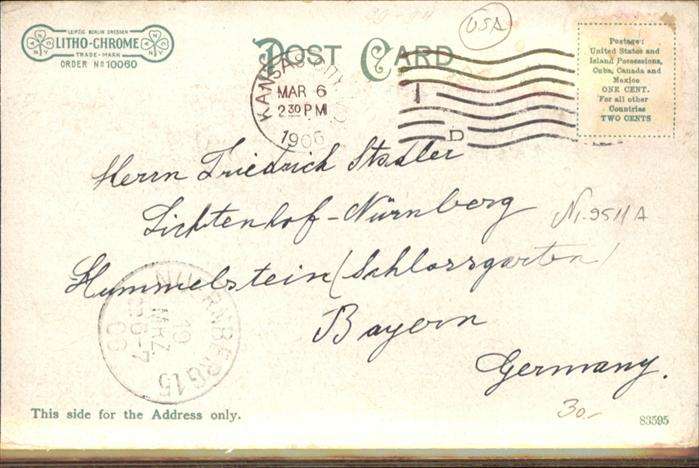 LEIPZIG BERLIN DRESDEN
LITHO-CHROME
TRADE-MARK
ORDER No 10060
USA
POST CARD
KANSAS CITY
MAR 6
2 30 PM
1906
1
D
Postage:
United States and
Island Possessions,
Cuba, Canada and
Mexico
ONE CENT.
For all other
Countries
TWO CENTS
Herrn Friedrich Stadler
Lichtenhof-Nürnberg
Hummelstein (Schlossgarten)
Bayern
Germany.
NUERNBERG 15
19
MRZ
6-7
06
30.-
This side for the Address only.
83595